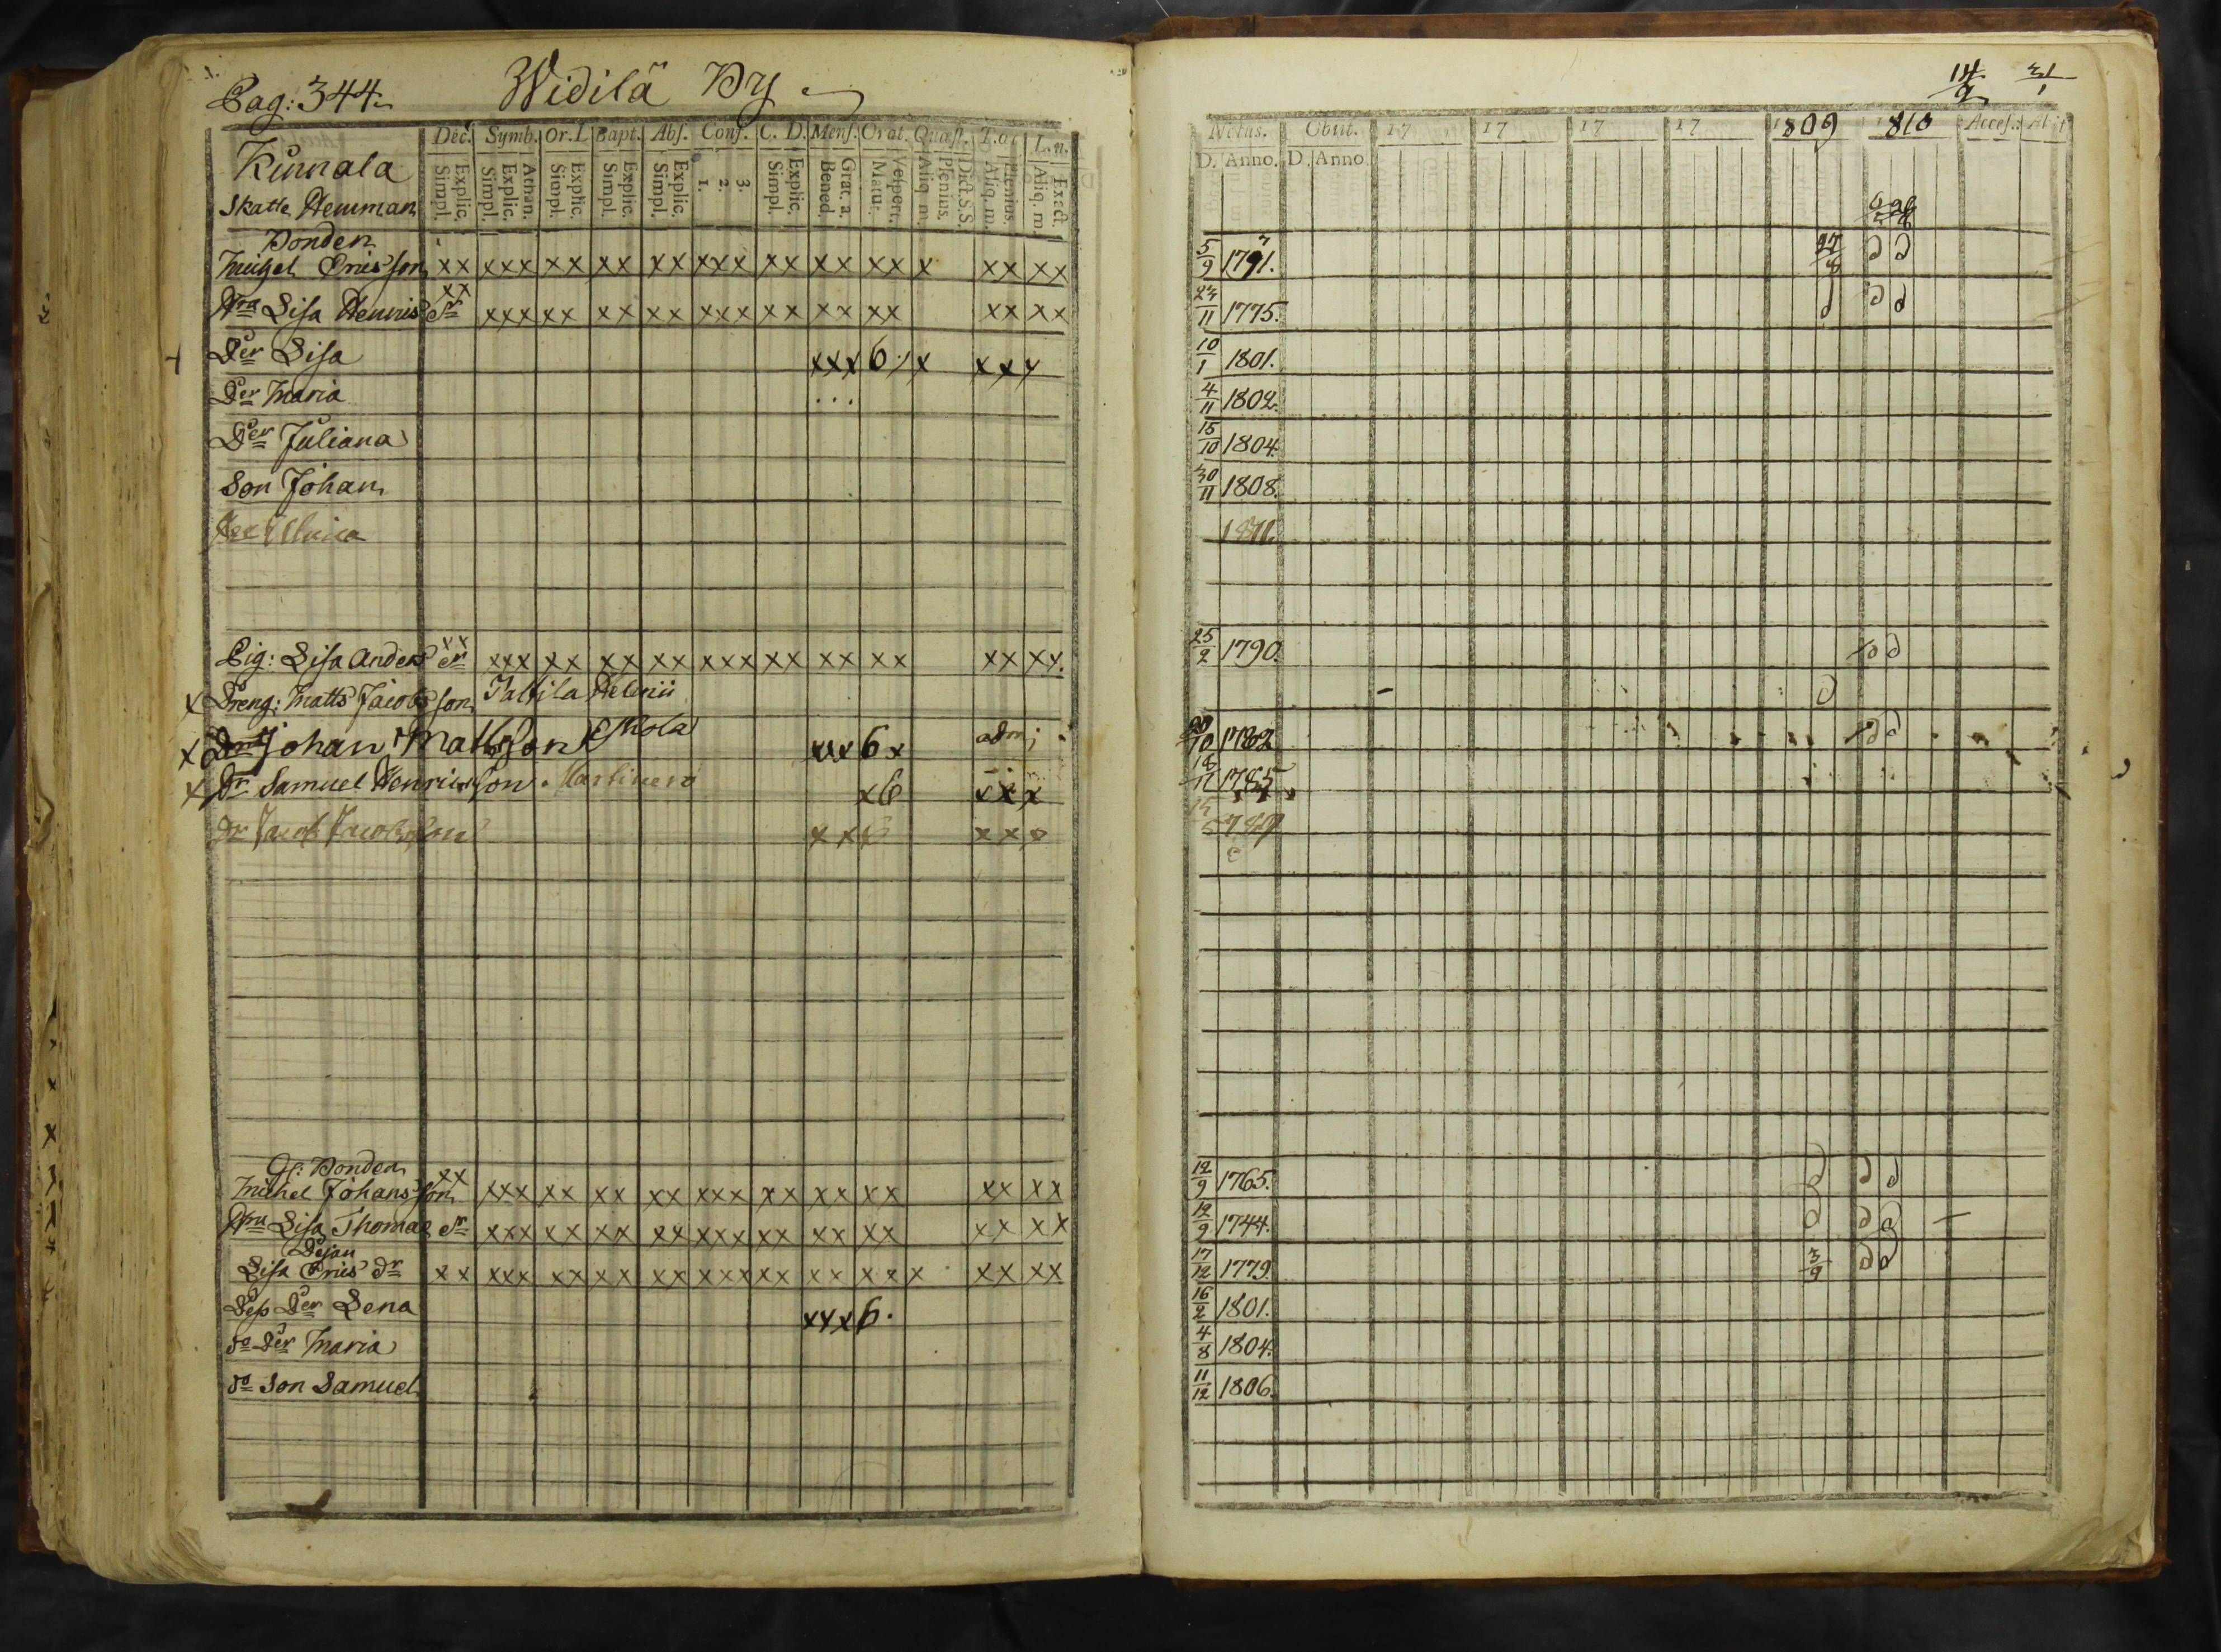 Pag: 344. Widilä By
Dec. Symb. Or. D Bapt. Abs. Conf. C. D. Mens. Orat. Quæst.
Explic. Simpl. Athan. Explic. Simpl. Explic. Simpl. Explic. Simpl. Explic. Simpl. 3. 2. 1. Explic. Simpl. Grat. a. Bened. Vespert. Matut. Dict. S.S. Plenius. Aliq. m. Plenius. Aliq. m. Exact. Aliq. m.
Kinnala
Skatte Hemman
Bonden
Michel Ericsson xx xxx xx xx xx xxx xx xx xx x xx xx
Hru Lisa Henrics dr xx xxx xx xx xx xxx xx xx xx xx xx
Der Lisa xxx 6 x xxx
Der Maria ...
Der Juliana
Son Johan
Der Ulrica
Pig: Lisa Anders dr xx xxx xx xx xx xxx xx xx xx xx xx
x Dreng: Matts Jacobsson
x Johan Mattsson xxx 6 x adm;
x Dr Samuel Henricsson x6 xxx
Dr Jacob Jacobsson xxx
Gl: Bonden
Michel Johansson xx xxx xx xx xx xxx xx xx xx xx xx
Hru Lisa Thomas dr xxx xx xx xx xxx xx xx xx xx xx
Lisa Erics dr xx xxx xx xx xx xxx xx xx xxx xx xx
Dess Der Lena xxx6.
do Der Maria
do Son Samuel
14/9 31/1
Natus. Obiit. 17 17 17 17 1809 1810 Acces.
D. Anno. D. Anno
5/9 1791.
23/11 1775.
10/1 1801.
4/11 1802.
15/10 1804.
30/11 1808.
1811.
25/2 1790.
1785
12/9 1765.
12/9 1744.
17/12 1779. 3/9
16/2 1801.
4/8 1804.
11/12 1806.